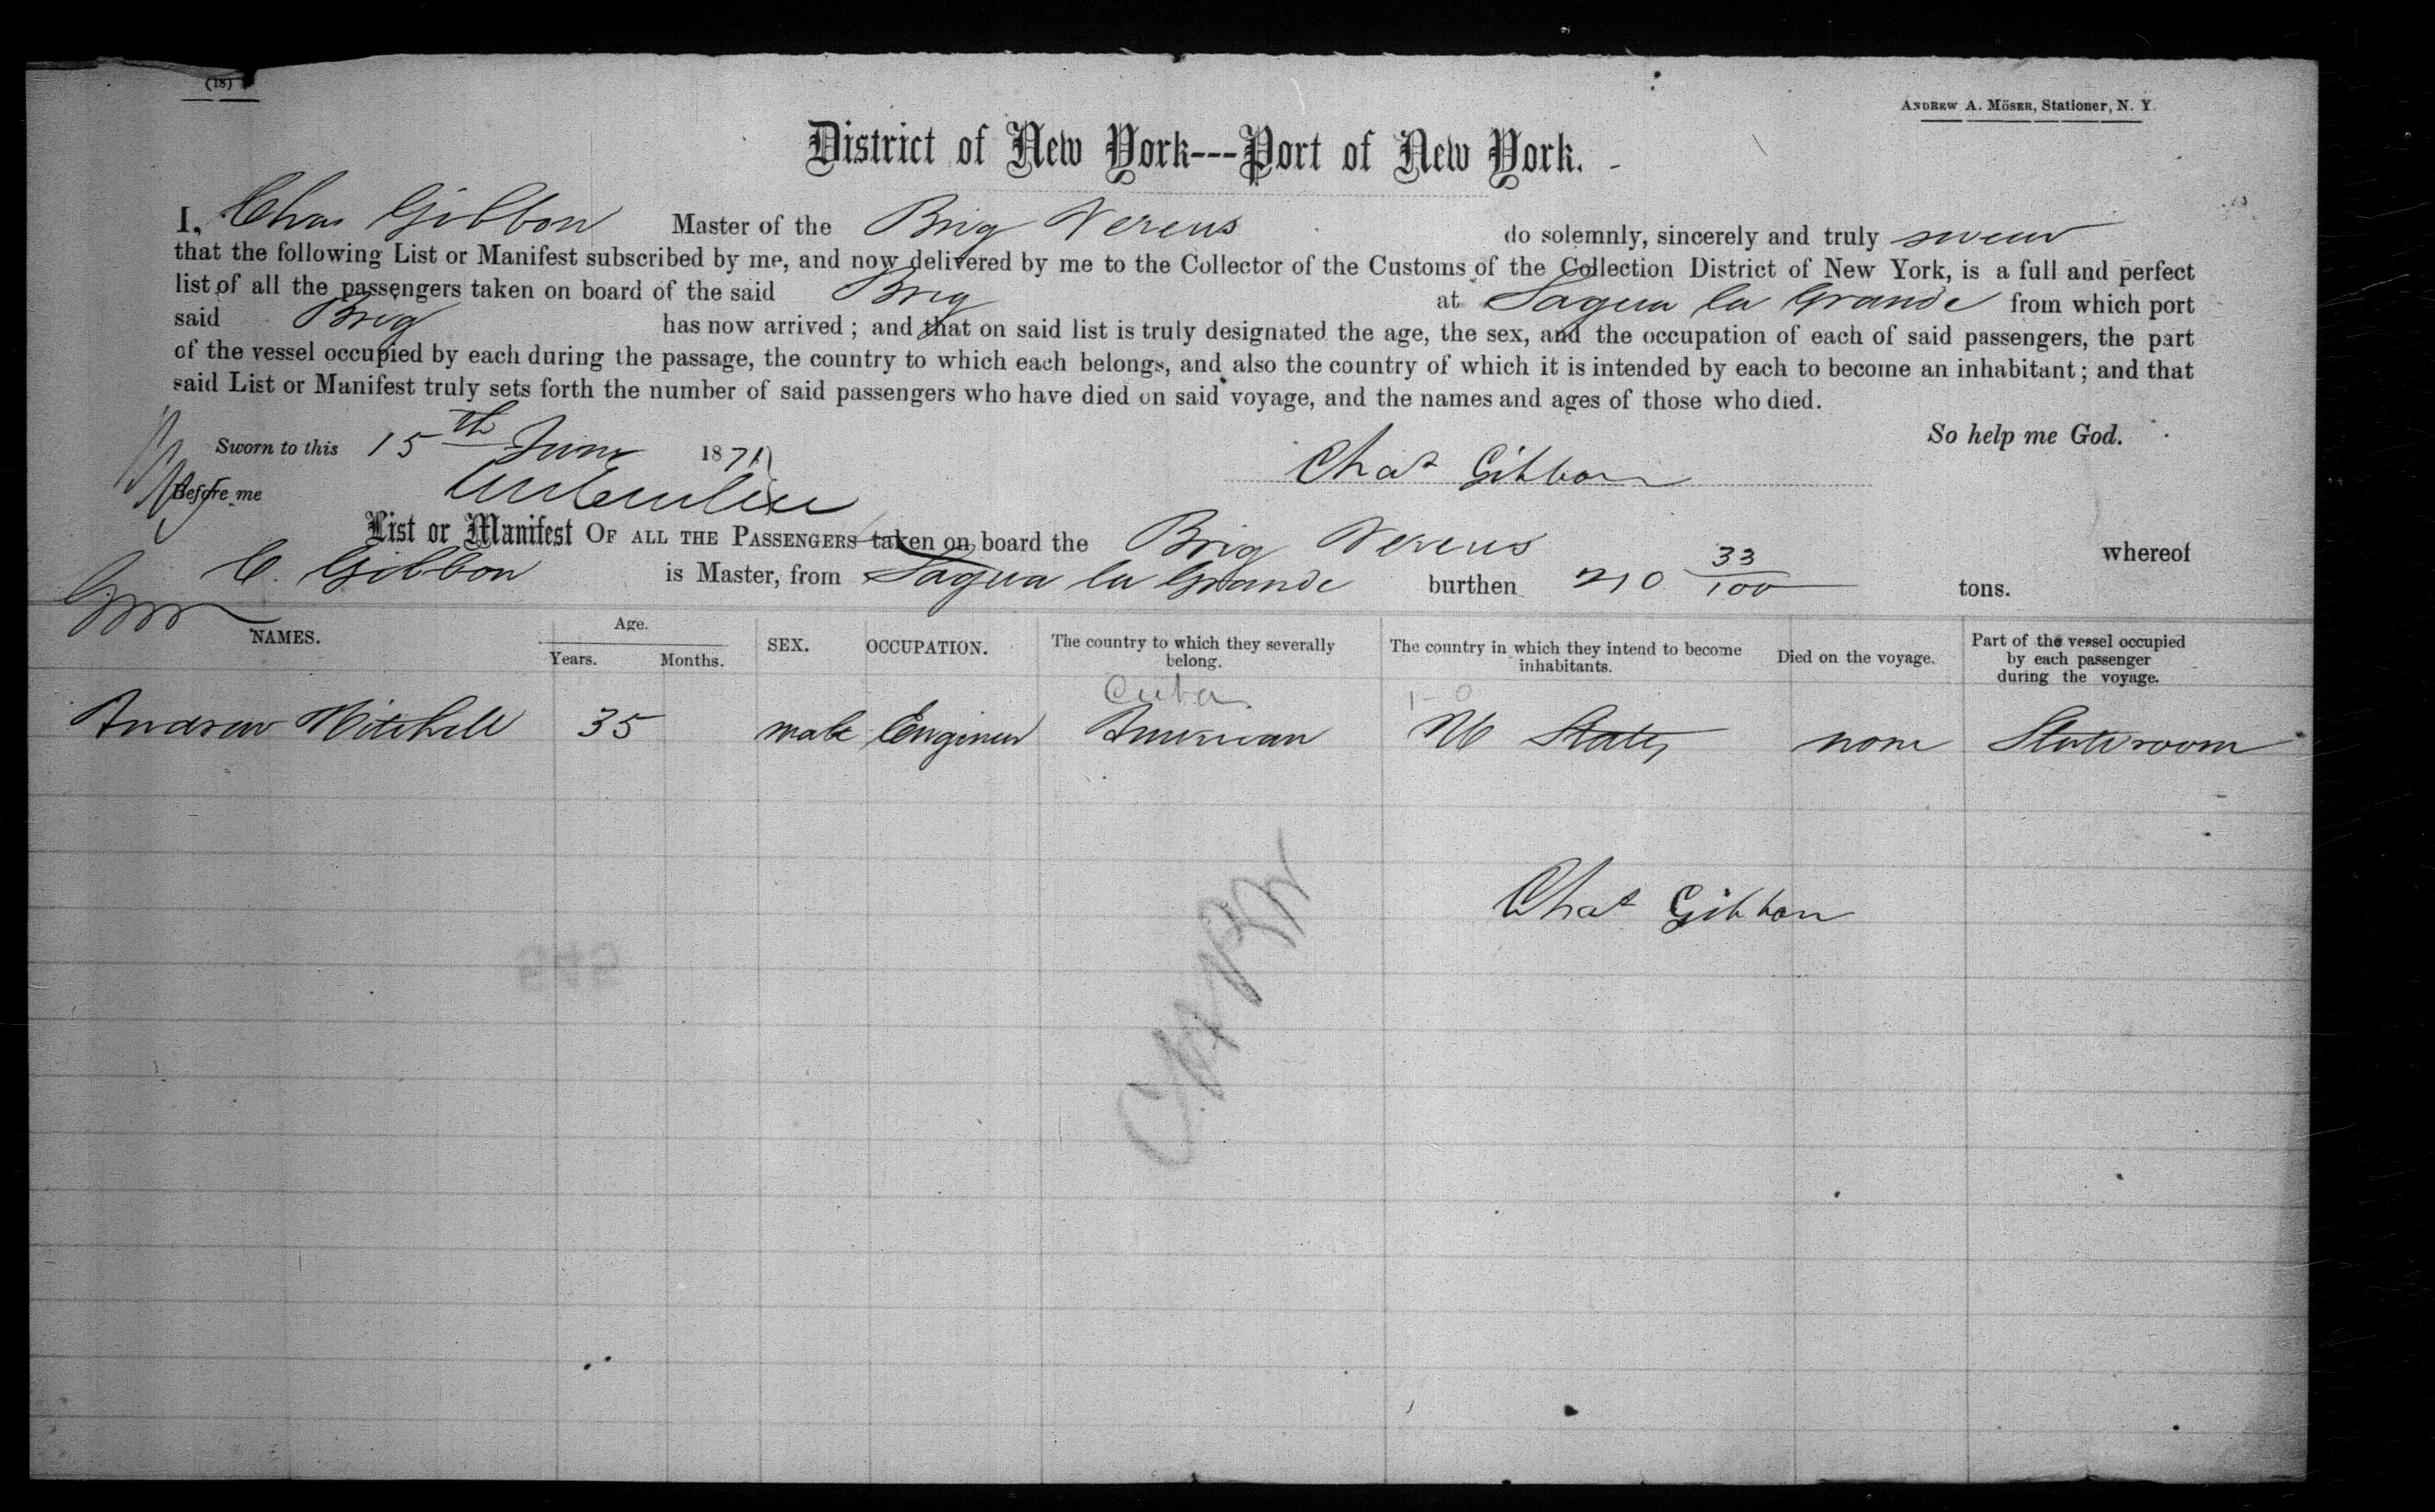 (18)
ANDREW A. MÖSER, Stationer, N. Y.
District of New York---Port of New York.
I, Chas Gibbon Master of the Brig Nereus do solemnly, sincerely and truly swear
that the following List or Manifest subscribed by me, and now delivered by me to the Collector of the Customs of the Collection District of New York, is a full and perfect
list of all the passengers taken on board of the said Brig at Sagua la Grande from which port
said Brig has now arrived; and that on said list is truly designated the age, the sex, and the occupation of each of said passengers, the part
of the vessel occupied by each during the passage, the country to which each belongs, and also the country of which it is intended by each to become an inhabitant; and that
said List or Manifest truly sets forth the number of said passengers who have died on said voyage, and the names and ages of those who died.
So help me God.
Sworn to this 15th June 1871
Chas Gibbon
Before me
List or Manifest OF ALL THE PASSENGERS taken on board the Brig Nereus whereof
C. Gibbon is Master, from Sagua la Grande burthen 210 33/100 tons.
NAMES. Age. Years. Months. SEX. OCCUPATION. The country to which they severally belong. The country in which they intend to become inhabitants. Died on the voyage. Part of the vessel occupied by each passenger during the voyage.
Cuba
Andrew Mitchell 35 male Engineer American U States none Stateroom
Chas Gibbon